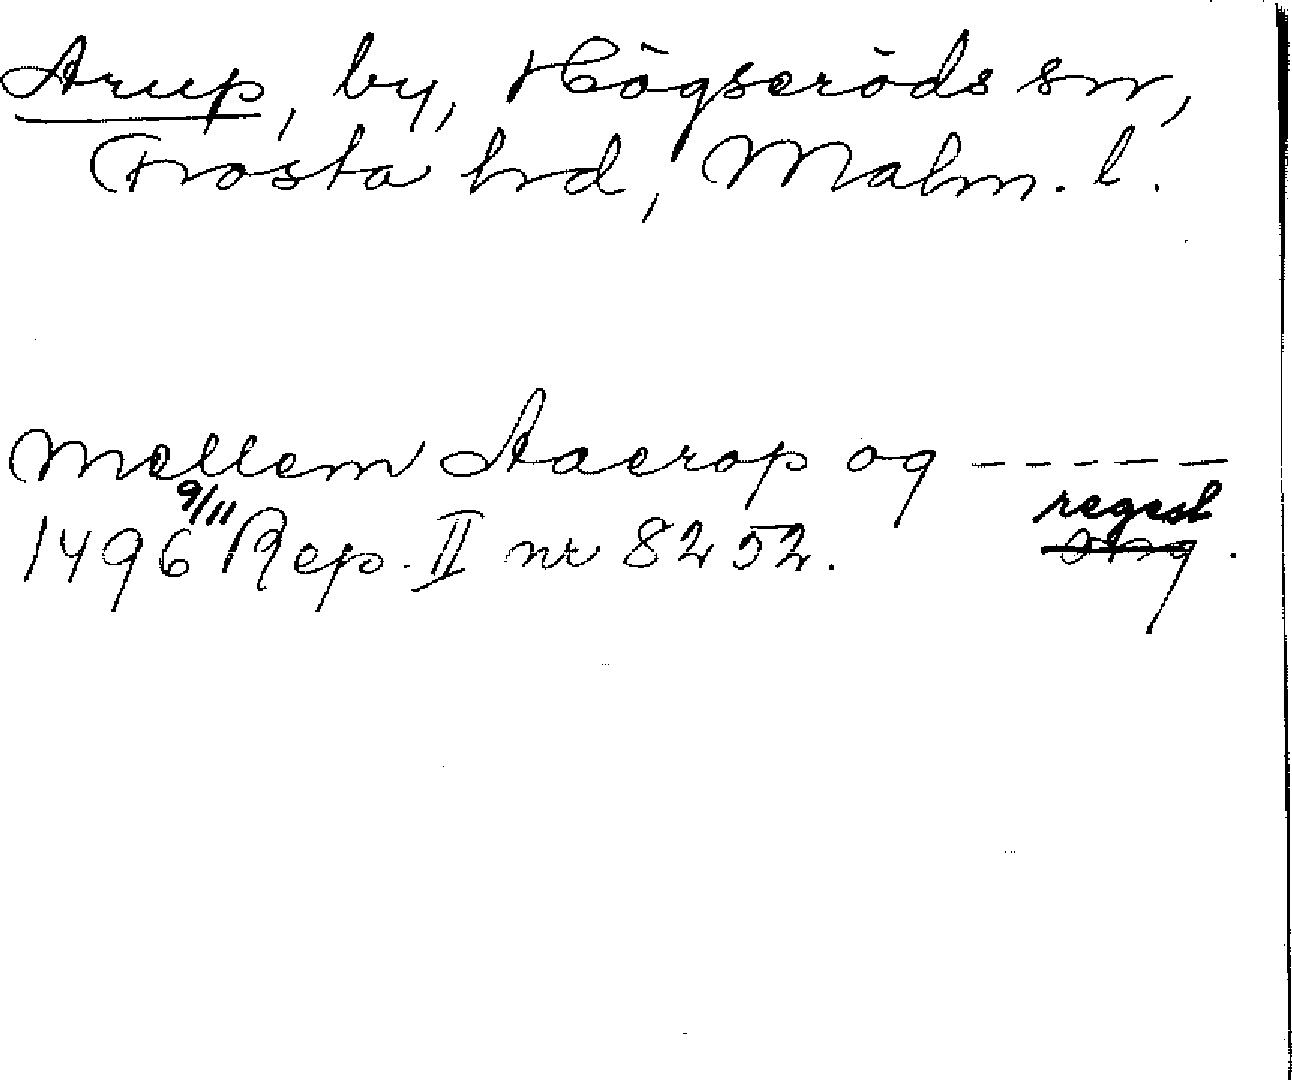 Arup, by, Högseröds sn,
Frosta hrd, Malm. l.
Mellem Aaerop og -----
1496 9/11 Rep. II nr 8252. regest.